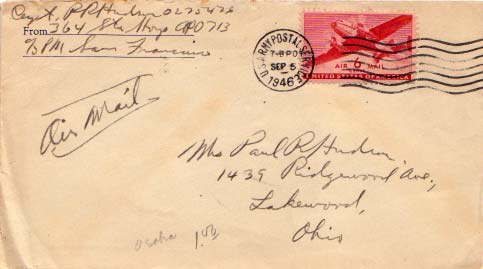 Capt. P. R. Hudson 0275476
From 364 Sta Hosp APO 713
% PM San Francisco
U.S. ARMY POSTAL SERVICE
APO
SEP 5
1946
6¢
AIR MAIL
UNITED STATES OF AMERICA
Air Mail
Mrs Paul R Hudson
1439 Ridgewood Ave,
Lakewood,
Ohio
Osaka 1.00